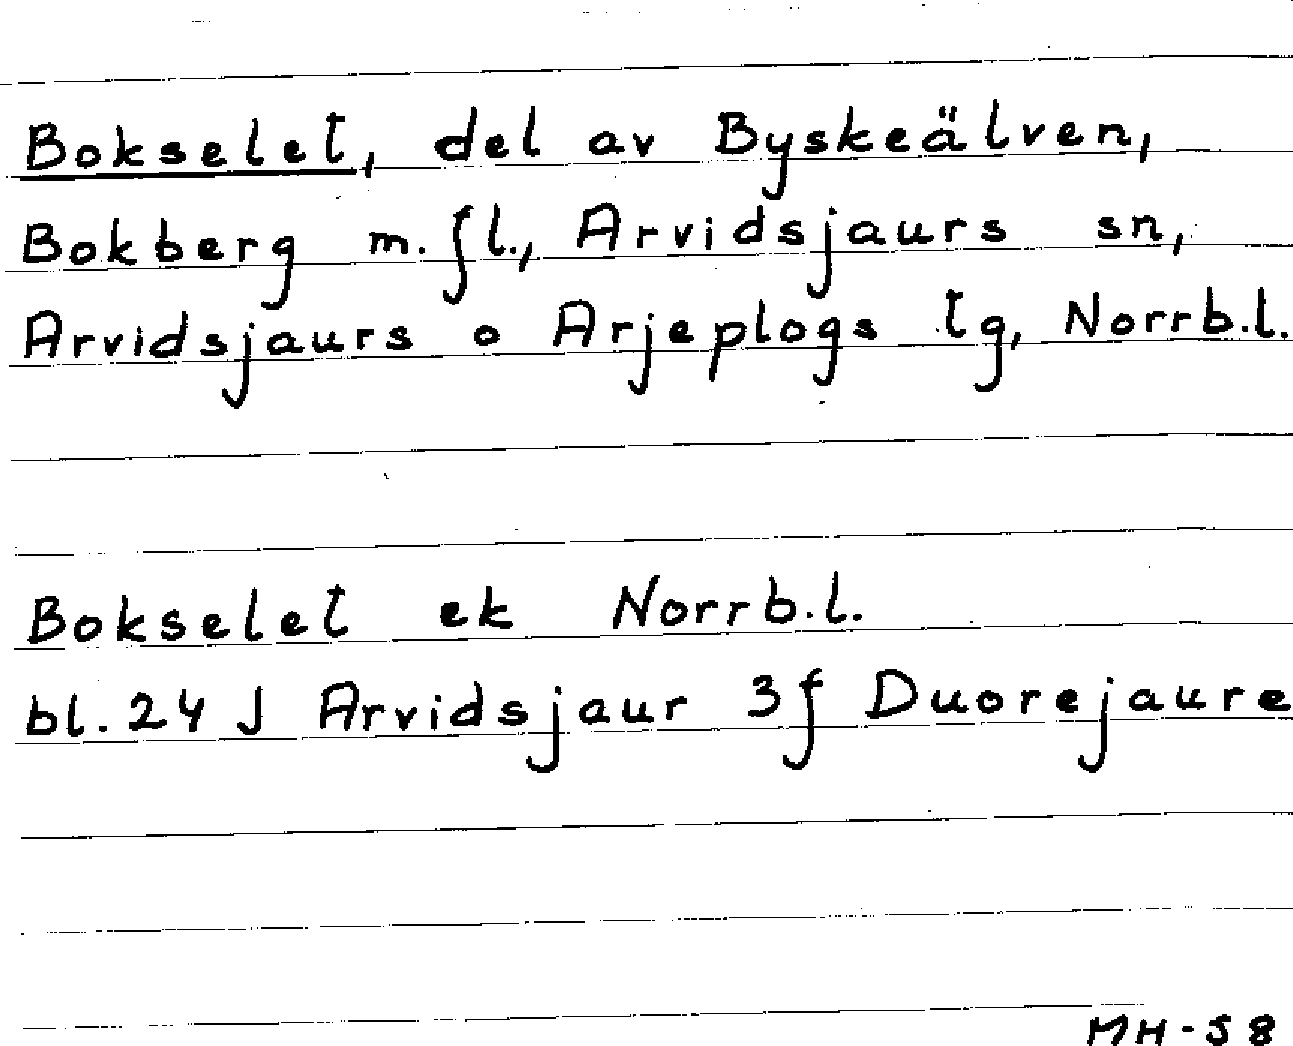 Bokselet, del av Byskeälven,
Bokberg m. fl., Arvidsjaurs sn,
Arvidsjaurs o Arjeplogs tg, Norrb.l.
Bokselet ek Norrb.l.
bl. 24 J Arvidsjaur 3f Duorejaure
MH-58